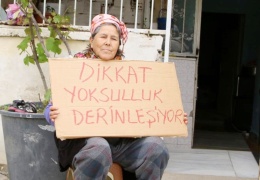 DİKKAT
YOKSULLUK
DERİNLEŞİYOR